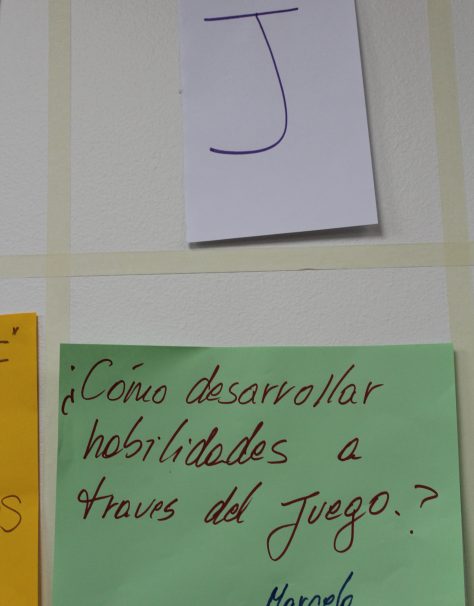 J
¿Cómo desarrollar
habilidades a
traves del Juego.?
S